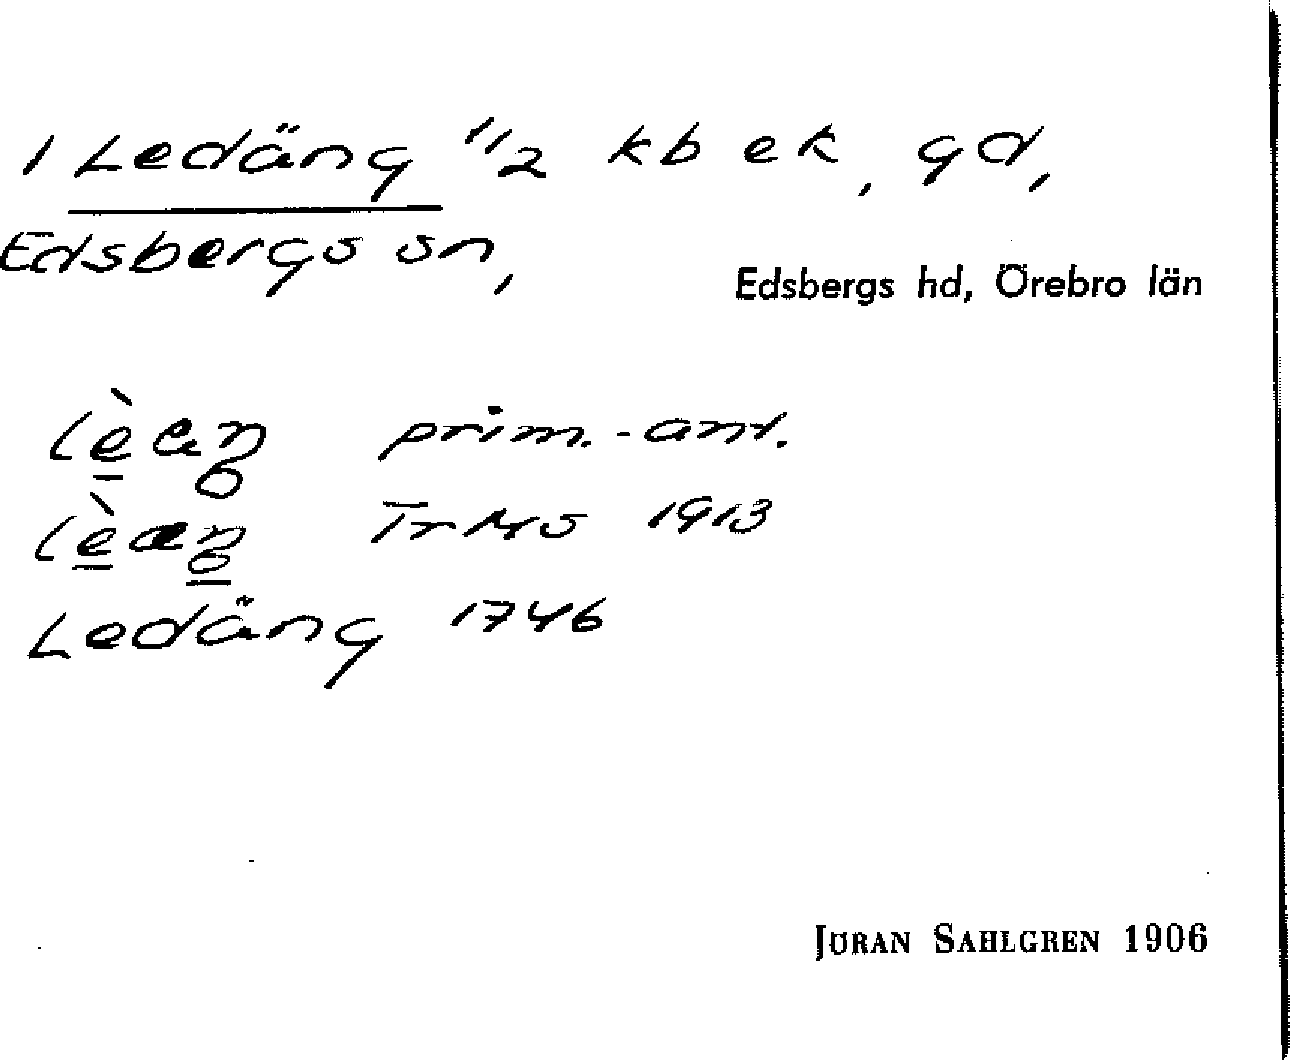 1 Ledäng 1/2 kb ek, gd,
Edsbergs sn,
Edsbergs hd, Örebro län
prim.-ant.
TrMS 1913
Ledäng 1746
JÖRAN SAHLGREN 1906